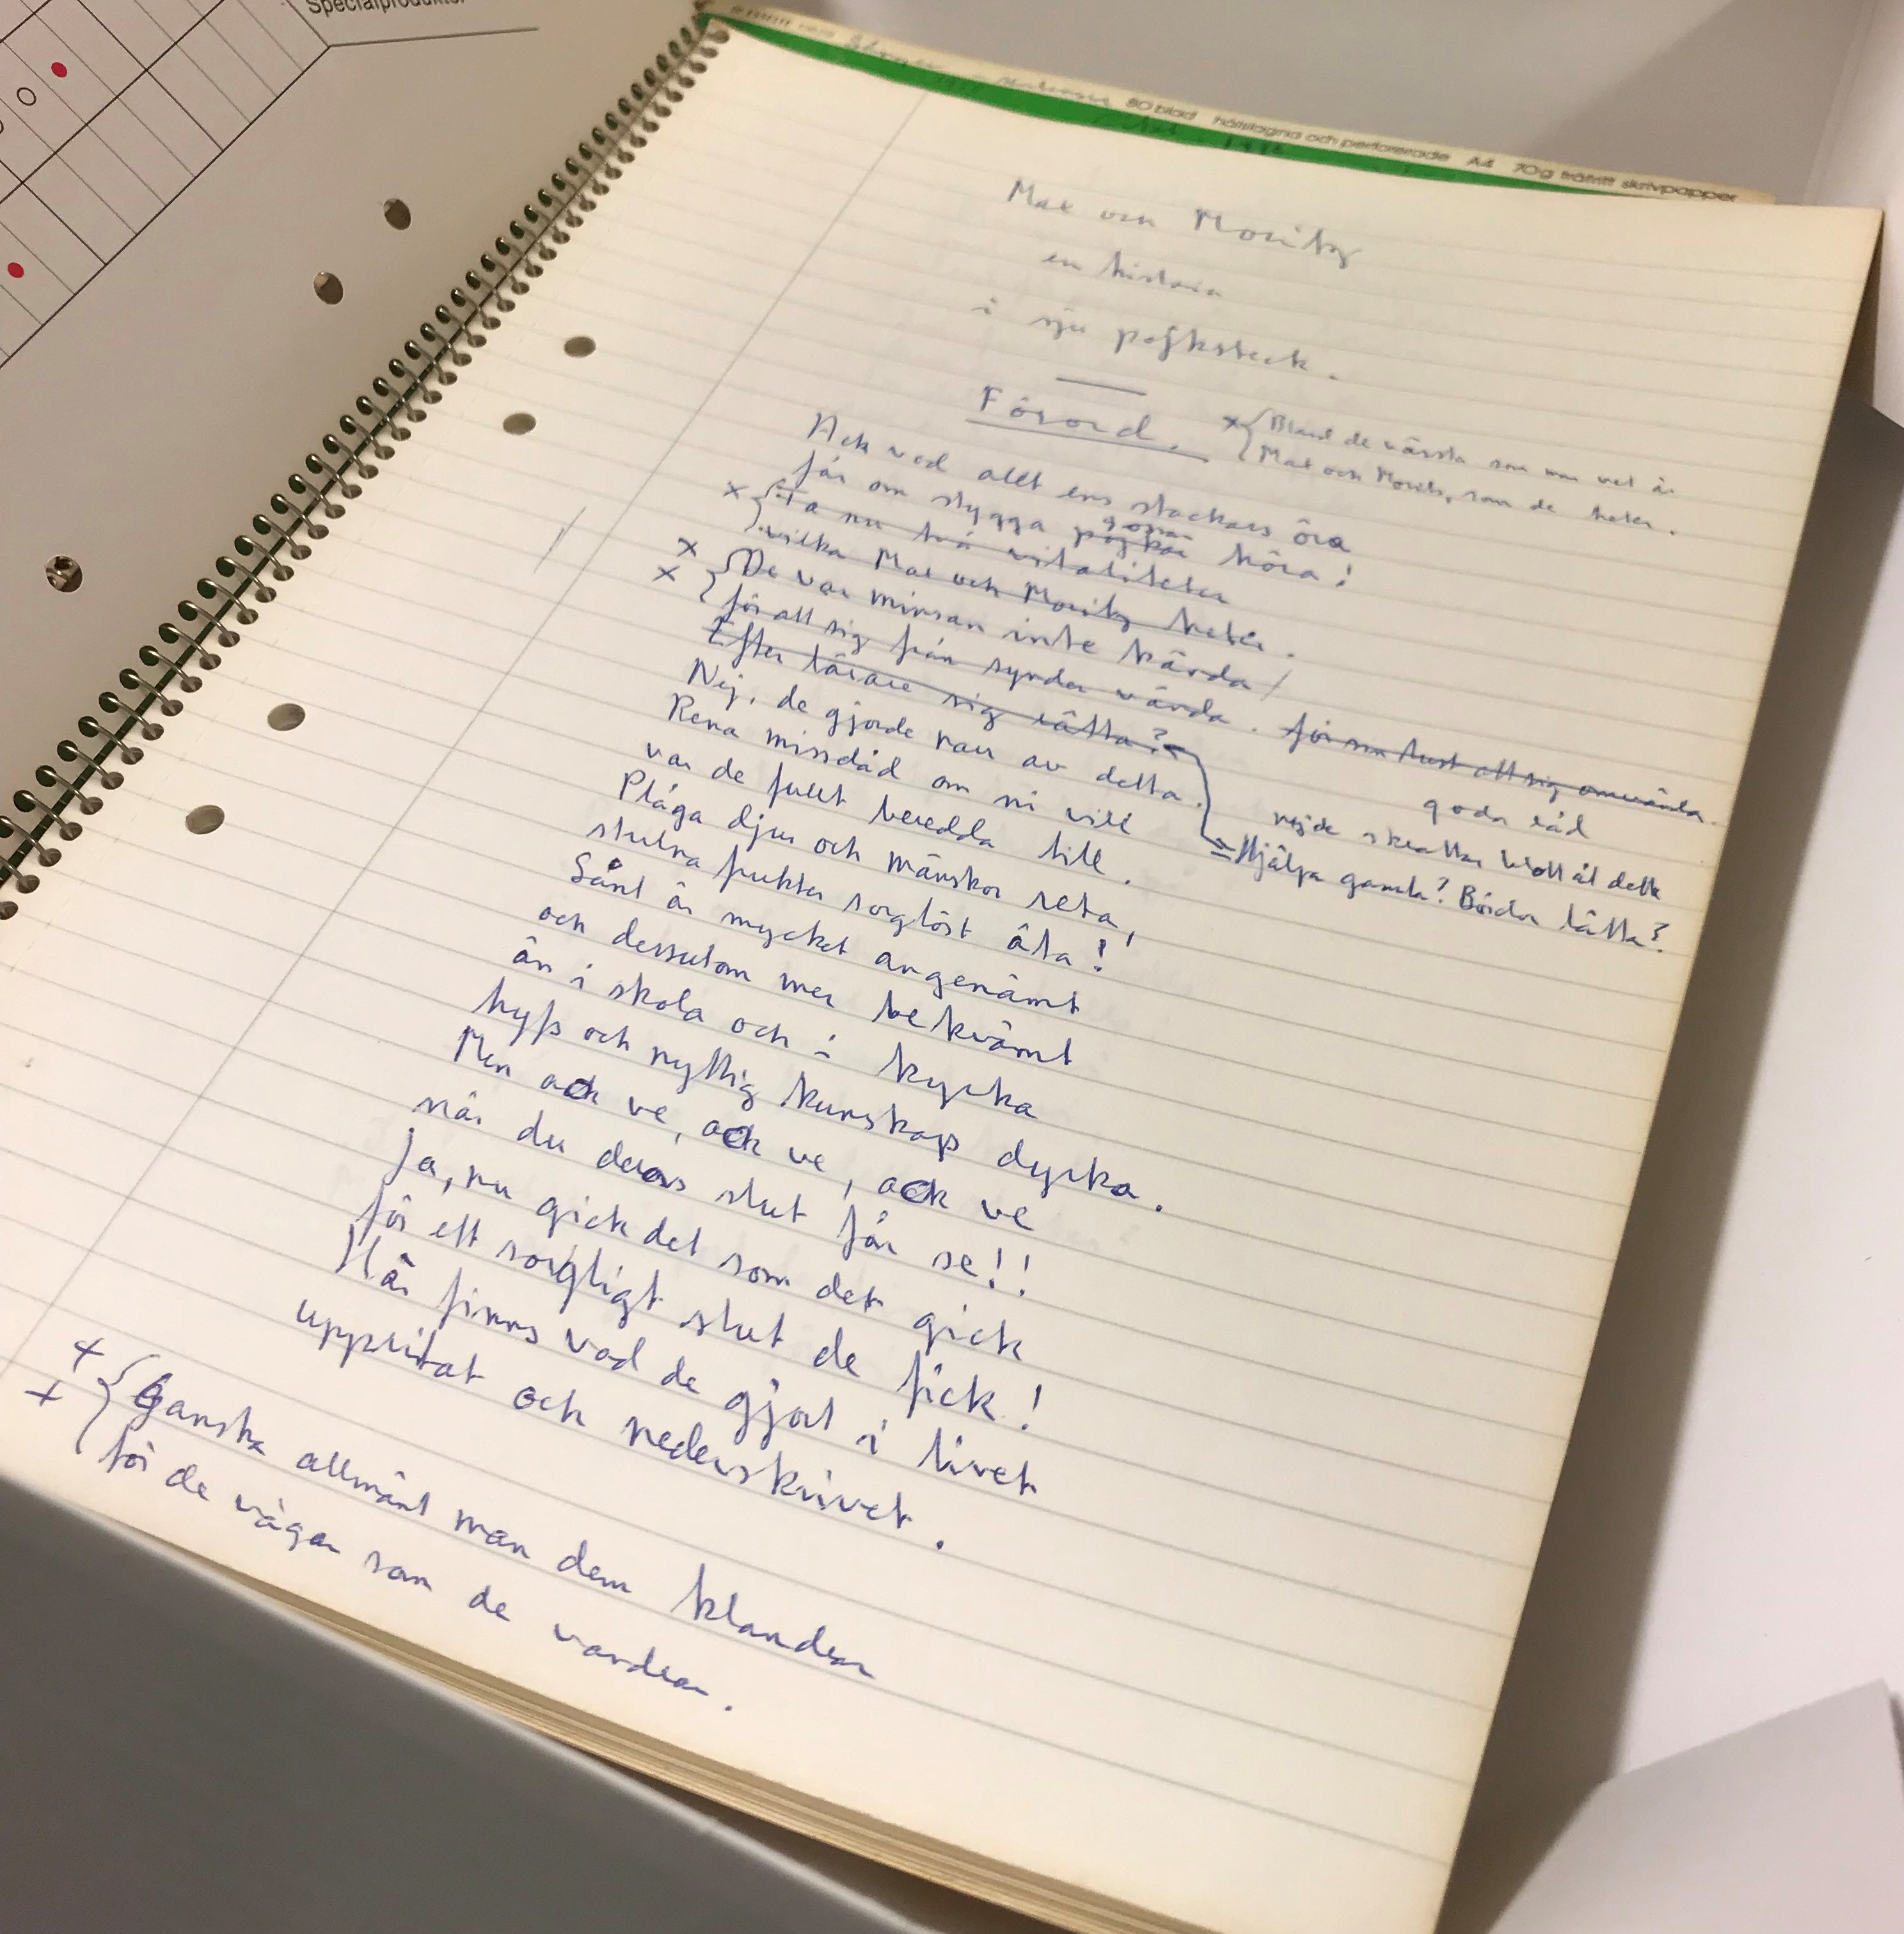 Specialprodukter
80 blad hålslagna och perforerade A4 70g träfritt skrivpapper
Max och Moritz
en historia
i sju pojkstreck.
Förord.
x Bland de värsta som man vet är
Max och Moritz, som de heter.
Ack vad allt ens stackars öra
får om stygga pojkar gossar höra!
x Ta nu två vitaliteter
vilka Max och Moritz heter.
x x De var minsan inte kärda
för att sig från synder vända. för en tust att sig omvända
Efter lärare sig rätta?
goda råd
Nej, de gjorde narr av detta.
nej de skrattar blott åt detta
Hjälpa gamla? Bördor lätta?
Rena missdåd om ni vill
var de fullt beredda till.
Plåga djur och mänskor reta,
stulna frukter sorglöst äta!
Sånt är mycket angenämt
och dessutom mer bekvämt
än i skola och i kyrka
hyfs och nyttig kunskap dyrka.
Men ack ve, ack ve, ack ve
när du deras slut får se!!
Ja, nu gick det som det gick
för ett sorgligt slut de fick!
Här finns vad de gjort i livet
uppritat och nederskrivet.
x x Ganska allmänt man dem klandrar
för de vägar som de vandrar.